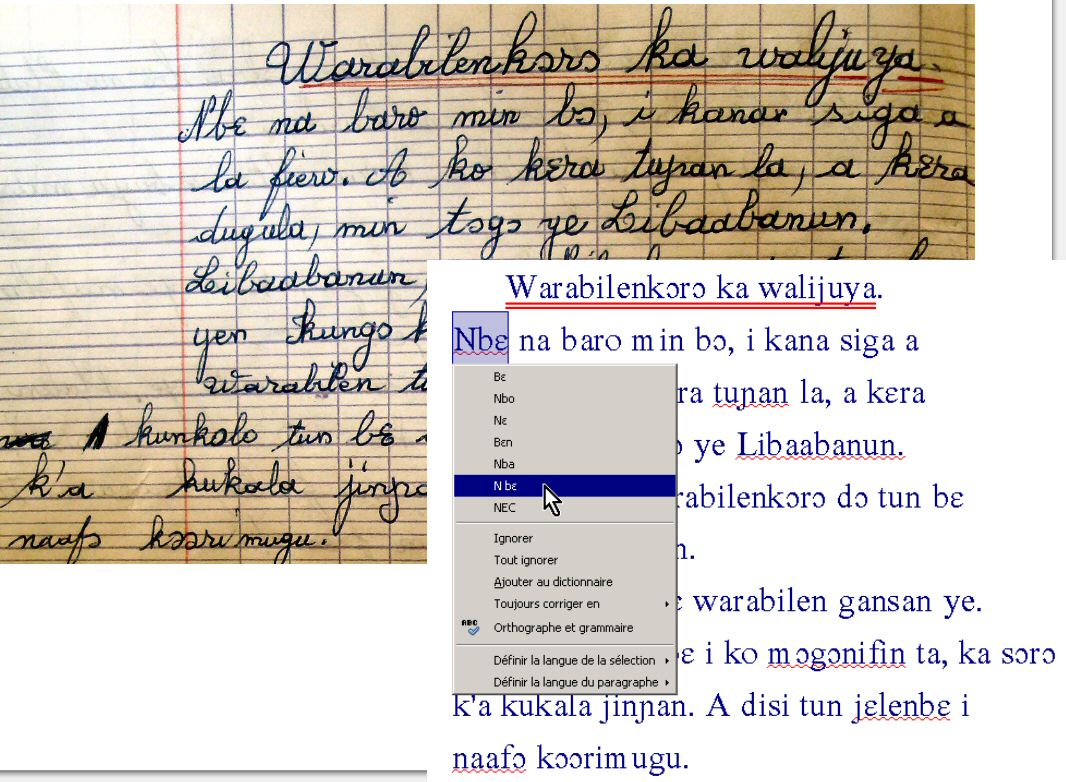 Warabilenkɔrɔ ka walijuya.
Nbɛ na baro min bɔ, i kanar siga a
la fiew. A ko kɛra tuɲan la, a kɛra
dugula, min tɔgɔ ye Libaabanun.
Libaabanun
yen kungo k
warabilen tu
kunkolo tun bɛ
k'a kukala jinɲa
naafɔ kɔɔrimugu.
Warabilenkɔrɔ ka walijuya.
Nbɛ na baro min bɔ, i kana siga a
ra tuɲan la, a kɛra
ɔ ye Libaabanun.
rabilenkɔrɔ dɔ tun bɛ
n.
ɛ warabilen gansan ye.
ɛ i ko mɔgɔnifin ta, ka sɔrɔ
k'a kukala jinɲan. A disi tun jɛlenbɛ i
naafɔ kɔɔrimugu.
Bɛ
Nbo
Nɛ
Bɛn
Nba
N bɛ
NEC
Ignorer
Tout ignorer
Ajouter au dictionnaire
Toujours corriger en
ABC Orthographe et grammaire
Définir la langue de la sélection
Définir la langue du paragraphe